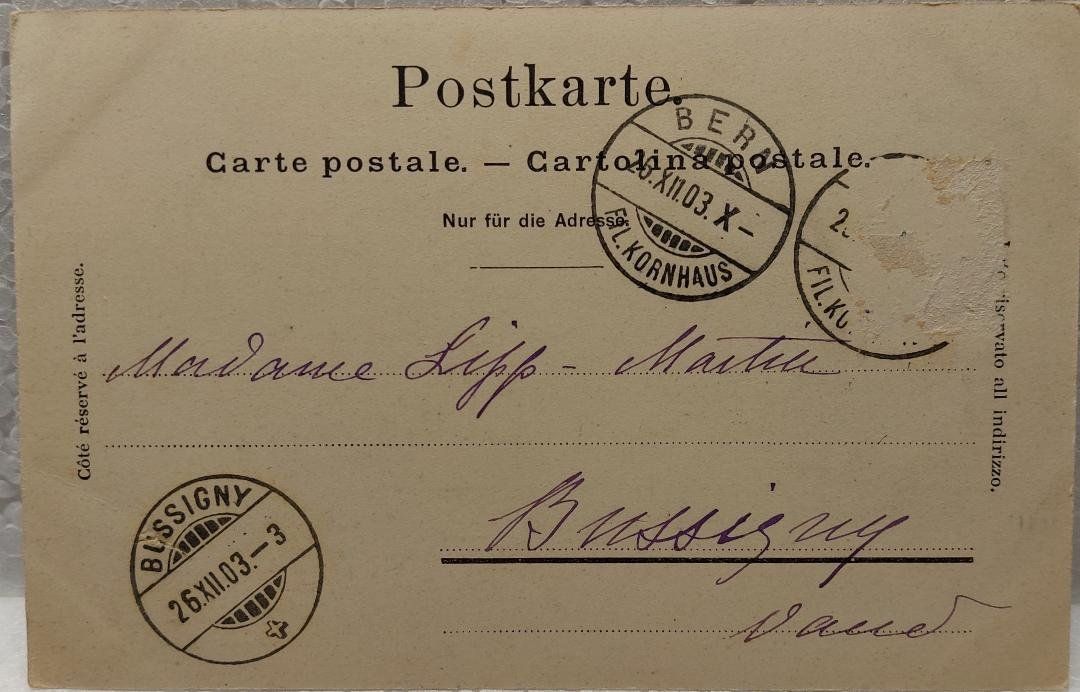 Postkarte.
Carte postale. — Cartolina postale.
Nur für die Adresse.
BERN
26.XII.03. X –
FIL. KORNHAUS
FIL.
Côté réservé à l'adresse.
all indirizzo.
Madame Lipp - Martin
Bussigny
Vaud
BUSSIGNY
26.XII.03. – 3